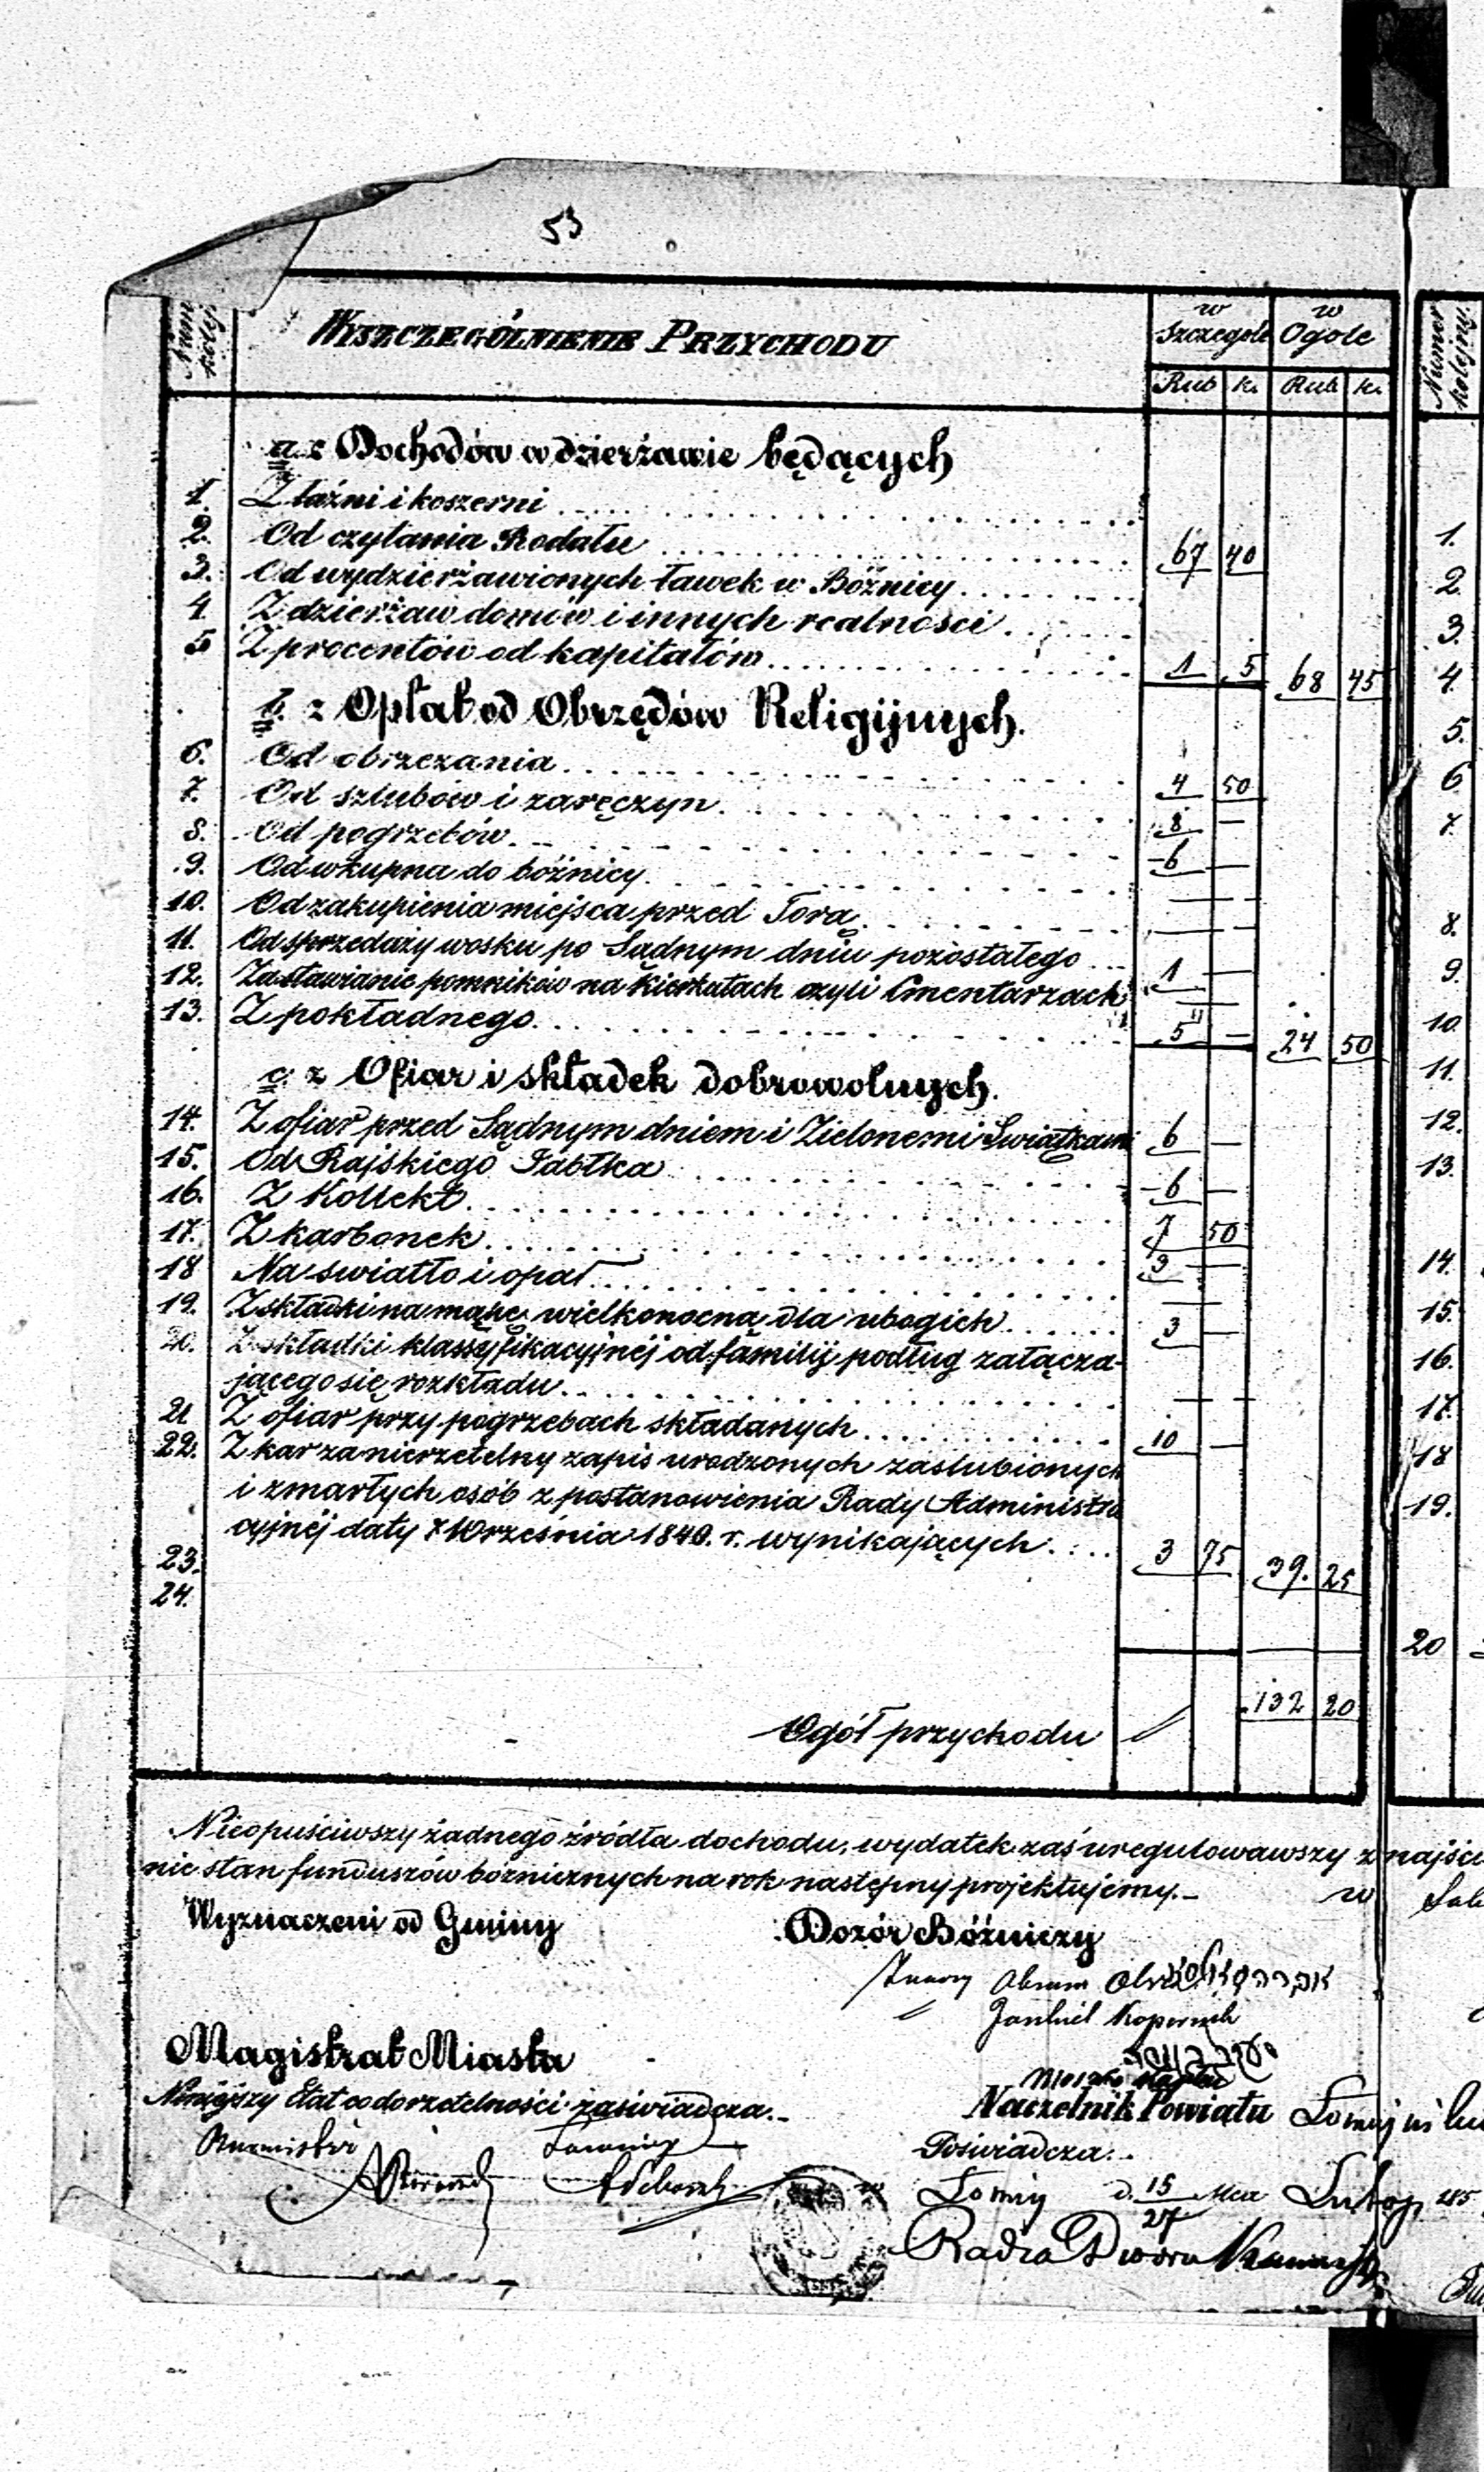 53
Num kolej
WYSZCZEGÓLNIENIE PRZYCHODU
w Szczególe
w Ogole
Rub k. Rub k.
a. z Dochodów w dzierżawie będących
1. Z łaźni i koszerni
2. Od czytania Rodału 67 40
3. Od wydzierżawionych ławek w Bóżnicy
4. Z dzierżaw domów i innych realności
5 Z procentów od kapitałów 1 5 68 45
b. z Opłat od Obrzędów Religijnych.
6. Od obrzezania 4 50
7. Od szlubów i zaręczyn 8 —
8. Od pogrzebów 6 —
9. Od wkupna do bóżnicy — —
10. Od zakupienia miejsca przed Torą — —
11. Od sprzedaży wosku po Sądnym dniu pozostałego 1 —
12. Za stawianie pomników na kierkutach czyli Cmentarzach —
13. Z pokładnego 5 — 24 50
c. z Ofiar i składek dobrowolnych.
14. Z ofiar przed Sądnym dniem i Zielonemi Swiątkami 6 —
15. Od Rajskiego Jabłka 6 —
16. Z Kollekt 7 50
17. Z karbonek 3 —
18 Na swiatło i opał —
19. Z składki na mąnę wielkonocną dla ubogich 3 —
20. Z składki klassyfikacyjnéj od familij podług załącza-
jącego się rozkładu — —
21 Z ofiar przy pogrzebach składanych 10 —
22. Z kar za nierzetelny zapis urodzonych zaslubionych
i zmarłych osób z postanowienia Rady Administra
cyjnéj daty 7 Września 1840. r. wynikających 3 75 39. 25
23.
24.
Ogół przychodu 132 20
Nieopuściwszy żadnego źródła dochodu, wydatek zaś uregulowawszy z najści
nie stan funduszów bóżnicznych na rok następny projektujemy.
w
Wyznaczeni od Gminy
Dozór Bóżniczy
Abram
Magistrat Miasta
Niniejszy Etat co do rzetelności zaświadcza.
Naczelnik Powiatu
Burmistrz
Poświadcza.
d. 15/27
Radca Dworu
Numer kolejny.
1.
2.
3.
4.
5.
6.
7.
8.
9.
10.
11.
12.
13.
14.
15.
16.
17.
18
19.
20